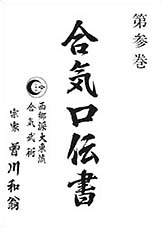 第参巻
合気口伝書
西郷派大東流
合気武術
宗家 曽川和翁